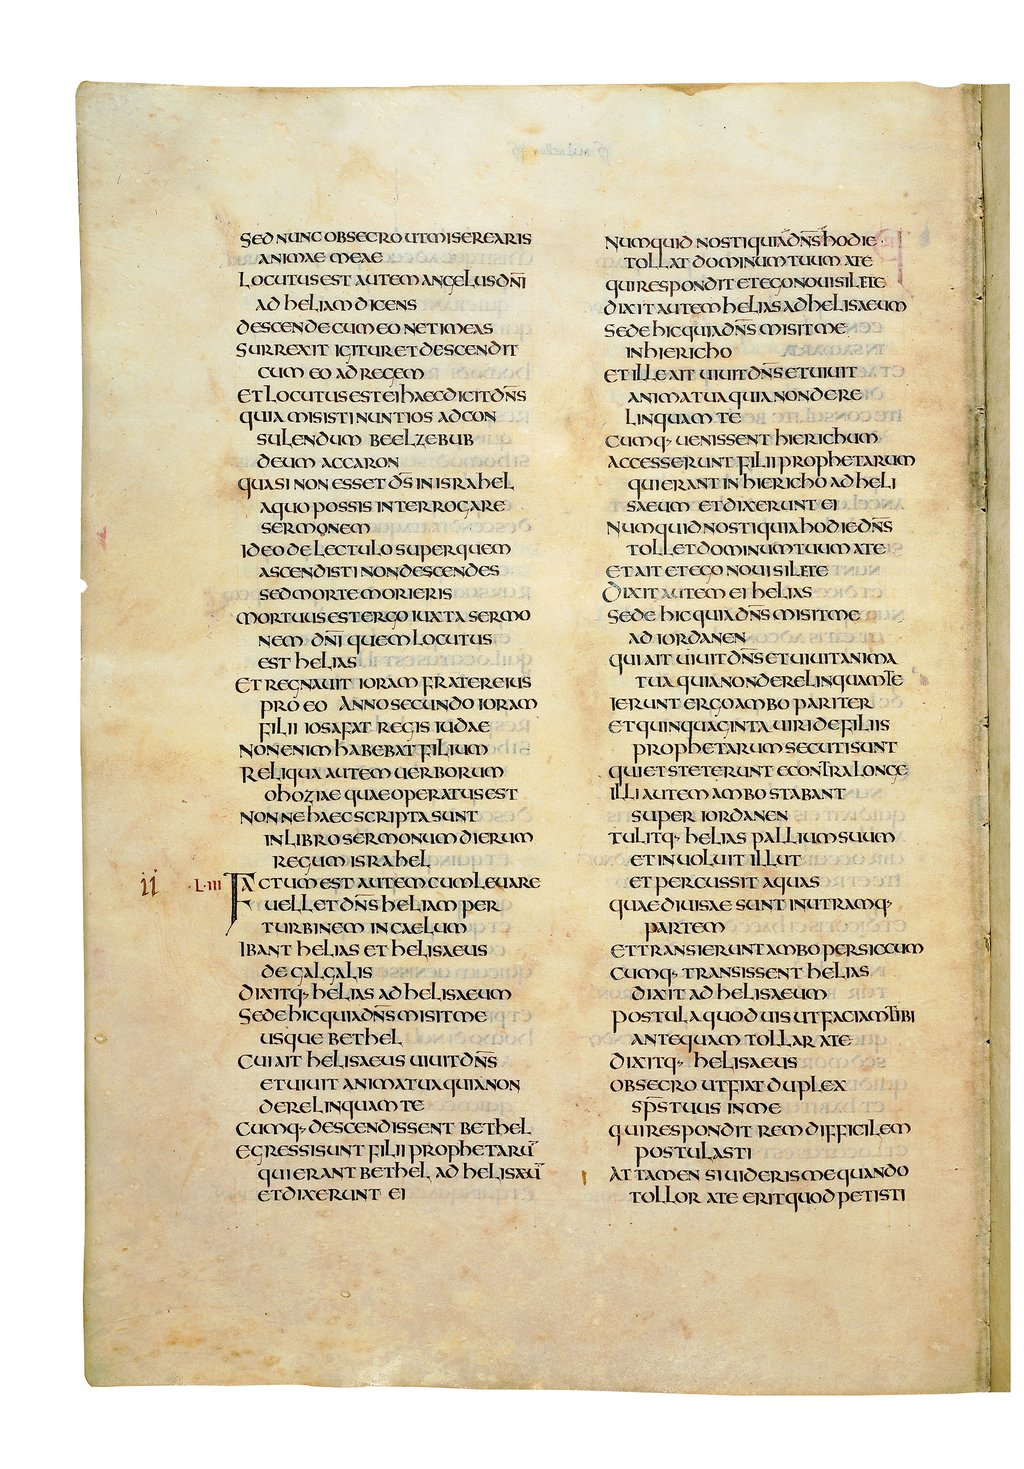 SED NUNC OBSECRO UT MISEREARIS
ANIMAE MEAE
LOCUTUS EST AUTEM ANGELUS DNĪ
AD HELIAM DICENS
DESCENDE CUM EO NE TIMEAS
SURREXIT IGITUR ET DESCENDIT
CUM EO AD REGEM
ET LOCUTUS EST EI HAEC DICIT DN̄S
QUIA MISISTI NUNTIOS AD CON
SULENDUM BEELZEBUB
DEUM ACCARON
QUASI NON ESSET D̄S IN ISRAHEL
A QUO POSSIS INTERROGARE
SERMONEM
IDEO DE LECTULO SUPER QUEM
ASCENDISTI NON DESCENDES
SED MORTE MORIERIS
MORTUUS EST ERGO IUXTA SERMO
NEM DNĪ QUEM LOCUTUS
EST HELIAS
ET REGNAUIT IORAM FRATER EIUS
PRO EO ANNO SECUNDO IORAM
FILII IOSAFAT REGIS IUDAE
NON ENIM HABEBAT FILIUM
RELIQUA AUTEM UERBORUM
OHOZIAE QUAE OPERATUS EST
NONNE HAEC SCRIPTA SUNT
IN LIBRO SERMONUM DIERUM
REGUM ISRAHEL
ii ·L·III FACTUM EST AUTEM CUM LEUARE
UELLET DN̄S HELIAM PER
TURBINEM IN CAELUM
IBANT HELIAS ET HELISAEUS
DE GALGALIS
DIXITQ· HELIAS AD HELISAEUM
SEDE HIC QUIA DN̄S MISIT ME
USQUE BETHEL
CUI AIT HELISAEUS UIUIT DN̄S
ET UIUIT ANIMA TUA QUIA NON
DERELINQUAM TE
CUMQ· DESCENDISSENT BETHEL
EGRESSI SUNT FILII PROPHETARŪ
QUI ERANT BETHEL AD HELISAEŪ
ET DIXERUNT EI
NUMQUID NOSTI QUIA DN̄S HODIE
TOLLAT DOMINUM TUUM A TE
QUI RESPONDIT ET EGO NOUI SILETE
DIXIT AUTEM HELIAS AD HELISAEUM
SEDE HIC QUIA DN̄S MISIT ME
IN HIERICHO
ET ILLE AIT UIUIT DN̄S ET UIUIT
ANIMA TUA QUIA NON DERE
LINQUAM TE
CUMQ· UENISSENT HIERICHUM
ACCESSERUNT FILII PROPHETARUM
QUI ERANT IN HIERICHO AD HELI
SAEUM ET DIXERUNT EI
NUMQUID NOSTI QUIA HODIE DN̄S
TOLLET DOMINUM TUUM A TE
ET AIT ET EGO NOUI SILETE
DIXIT AUTEM EI HELIAS
SEDE HIC QUIA DN̄S MISIT ME
AD IORDANEN
QUI AIT UIUIT DN̄S ET UIUIT ANIMA
TUA QUIA NON DERELINQUAM TE
IERUNT ERGO AMBO PARITER
ET QUINQUAGINTA UIRI DE FILIIS
PROPHETARUM SECUTI SUNT
QUI ET STETERUNT E CONTRA LONGE
ILLI AUTEM AMBO STABANT
SUPER IORDANEN
TULITQ· HELIAS PALLIUM SUUM
ET INUOLUIT ILLUT
ET PERCUSSIT AQUAS
QUAE DIUISAE SUNT IN UTRAMQ·
PARTEM
ET TRANSIERUNT AMBO PER SICCUM
CUMQ· TRANSISSENT HELIAS
DIXIT AD HELISAEUM
POSTULA QUOD UIS UT FACIAM TIBI
ANTEQUAM TOLLAR A TE
DIXITQ· HELISAEUS
OBSECRO UT FIAT DUPLEX
SP̄S TUUS IN ME
QUI RESPONDIT REM DIFFICILEM
POSTULASTI
ATTAMEN SI UIDERIS ME QUANDO
TOLLOR A TE ERIT QUOD PETISTI